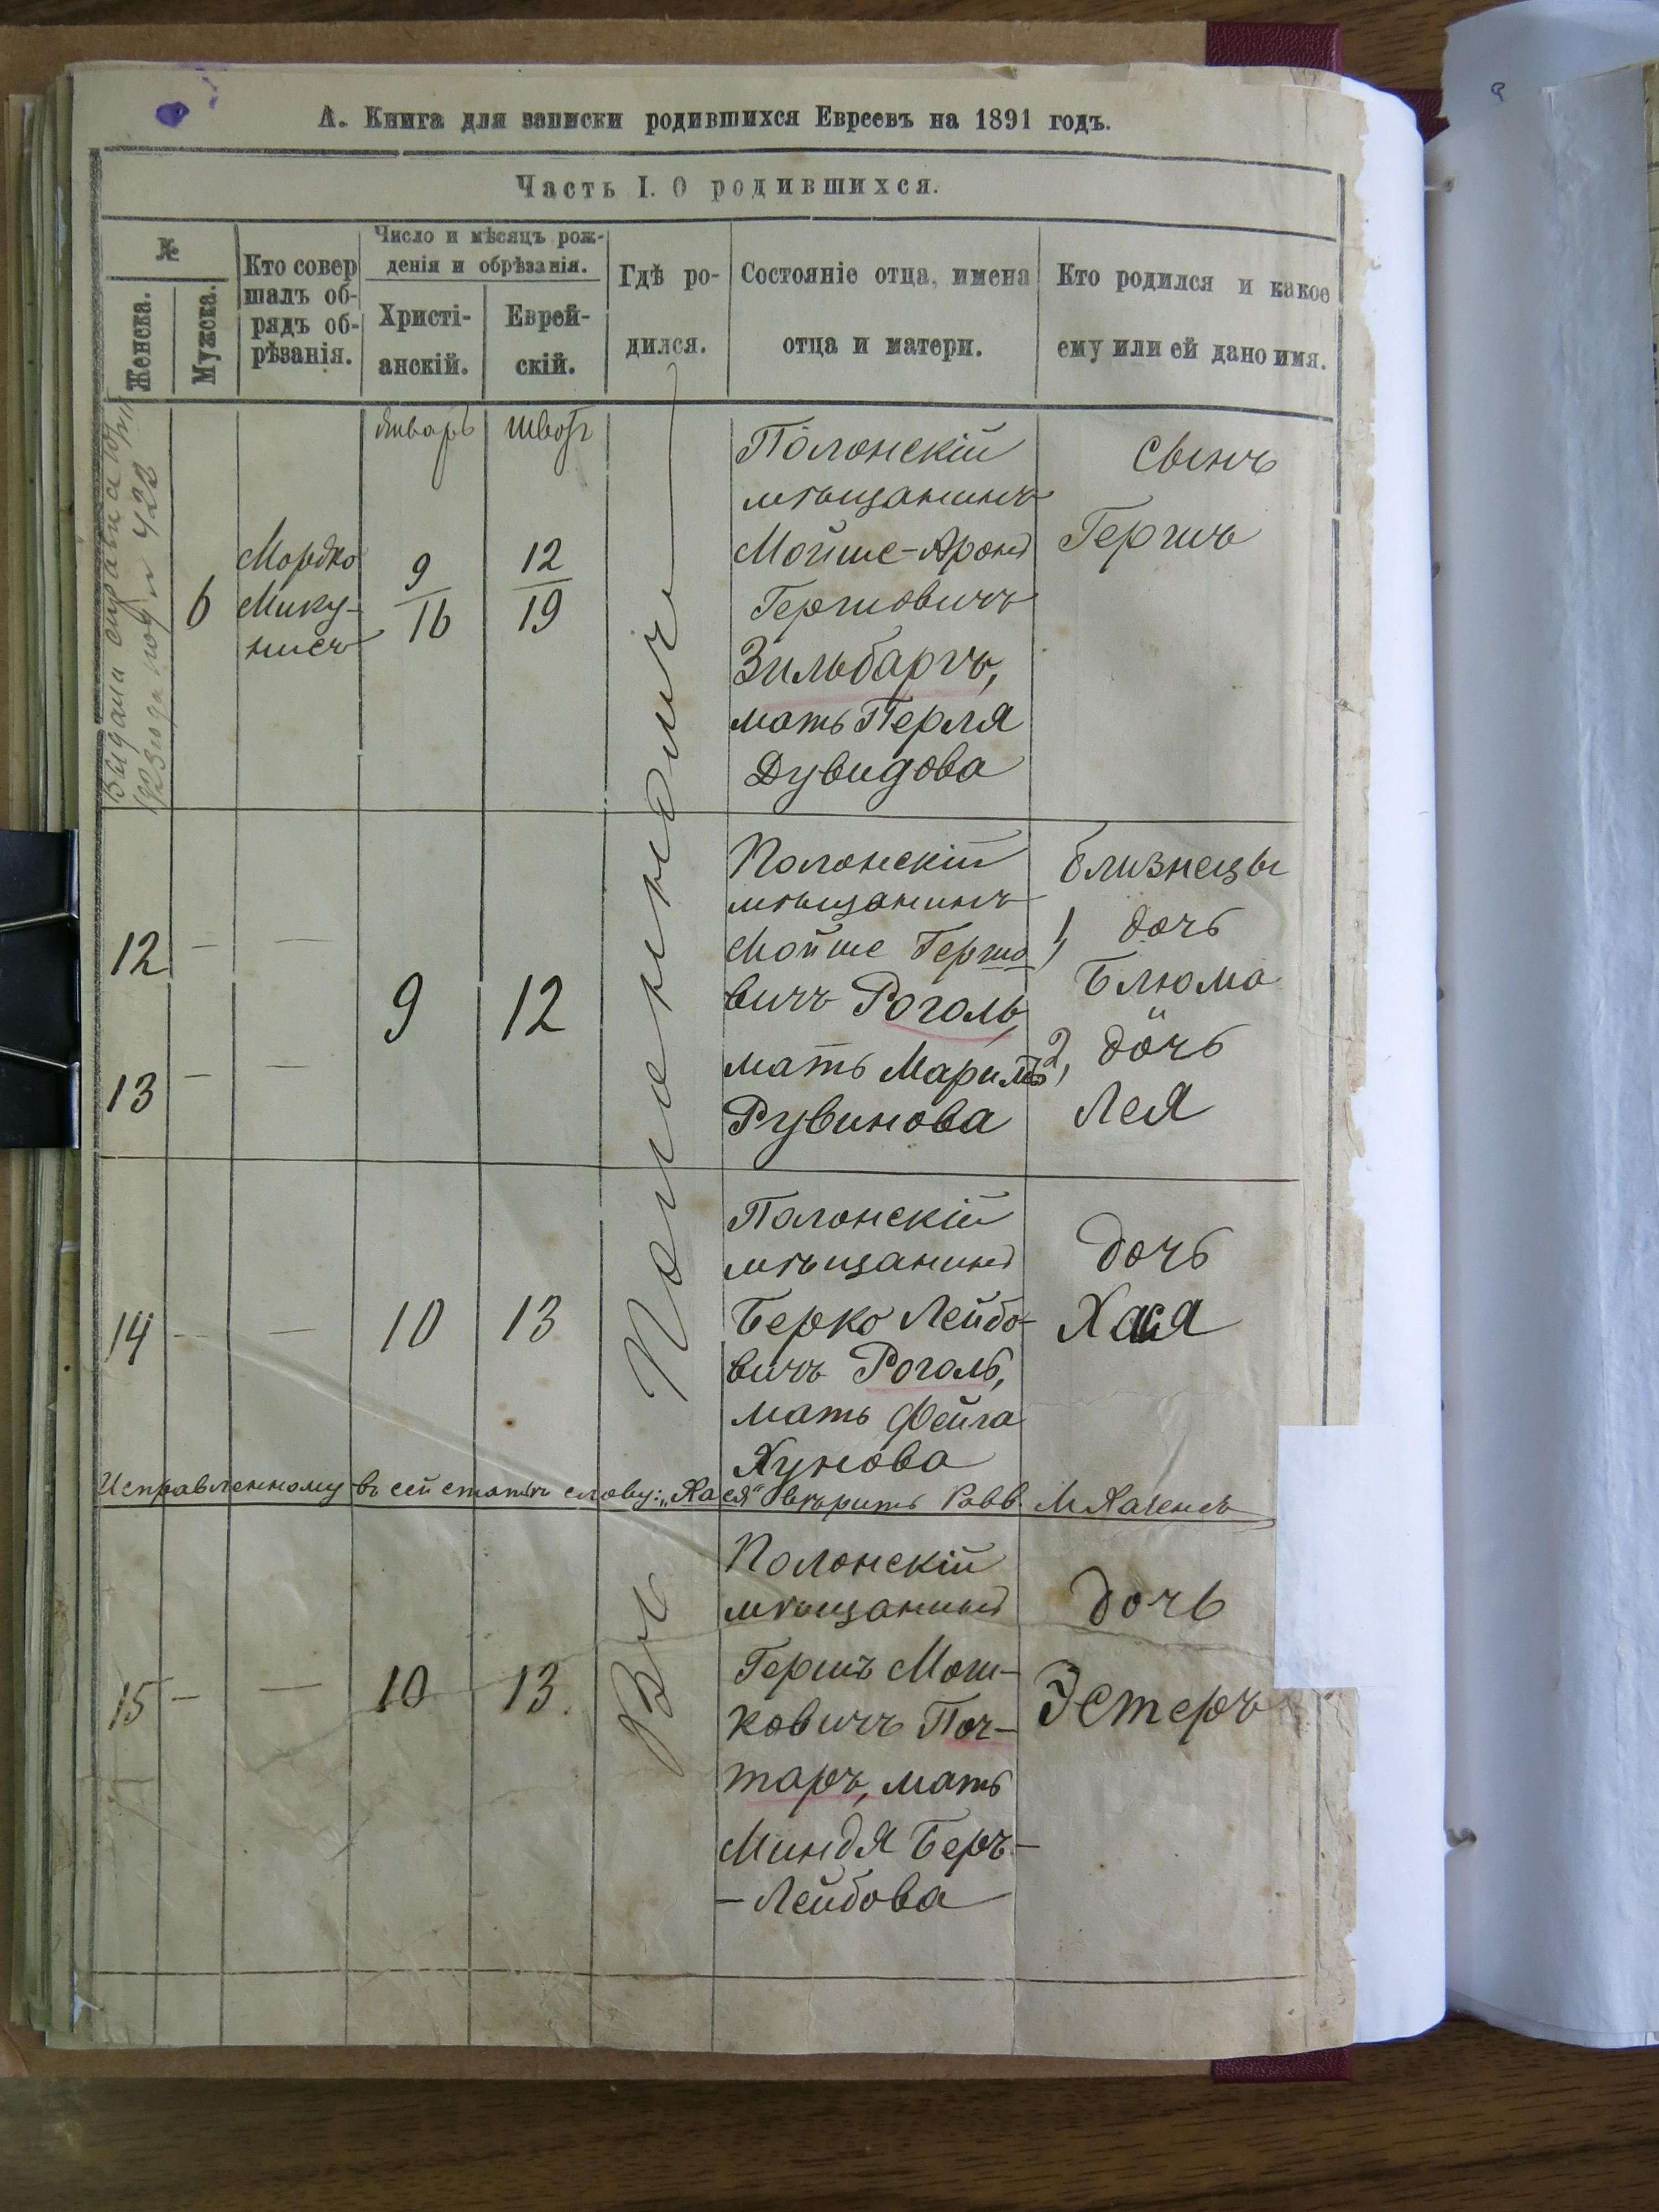 А. Книга для записки родившихся Евреевъ на 1891 годъ.
Часть I. О родившихся.
№
Женска.
Мужска.
Кто совер
шалъ об-
рядъ об-
рѣзанія.
Число и мѣсяцъ рож-
денія и обрѣзанія.
Христі-
анскій.
Еврей-
скій.
Гдѣ ро-
дился.
Состояніе отца, имена
отца и матери.
Кто родился и какое
ему или ей дано имя.
Январь
Шватъ
Выдана справка
1923 года под № 422
6
Мордко
Мику-
нисъ
9
16
12
19
Въ Полонномъ
Полонскій
мѣщанинъ
Мойше-Аронъ
Гершовичъ
Зильбаргъ,
мать Перля
Дувидова
сынъ
Гершъ
12 — —
13 — —
9
12
Полонскій
мѣщанинъ
Мойше Гершо
вичъ Роголь,
мать Маримъ
Рувинова
Близнецы
1, дочь
Блюма
2, дочь
Лея
14 — —
10
13
Полонскій
мѣщанинъ
Берко Лейбо-
вичъ Роголь,
мать Фейга
Хунова
дочь
Хася
Исправленному въ сей статьѣ слову: „Хася" вѣрить Равв.
15 — —
10
13.
Полонскій
мѣщанинъ
Гершъ Мош-
ковичъ Поч-
таръ, мать
Миндя Беръ-
-Лейбова
дочь
Эстеръ